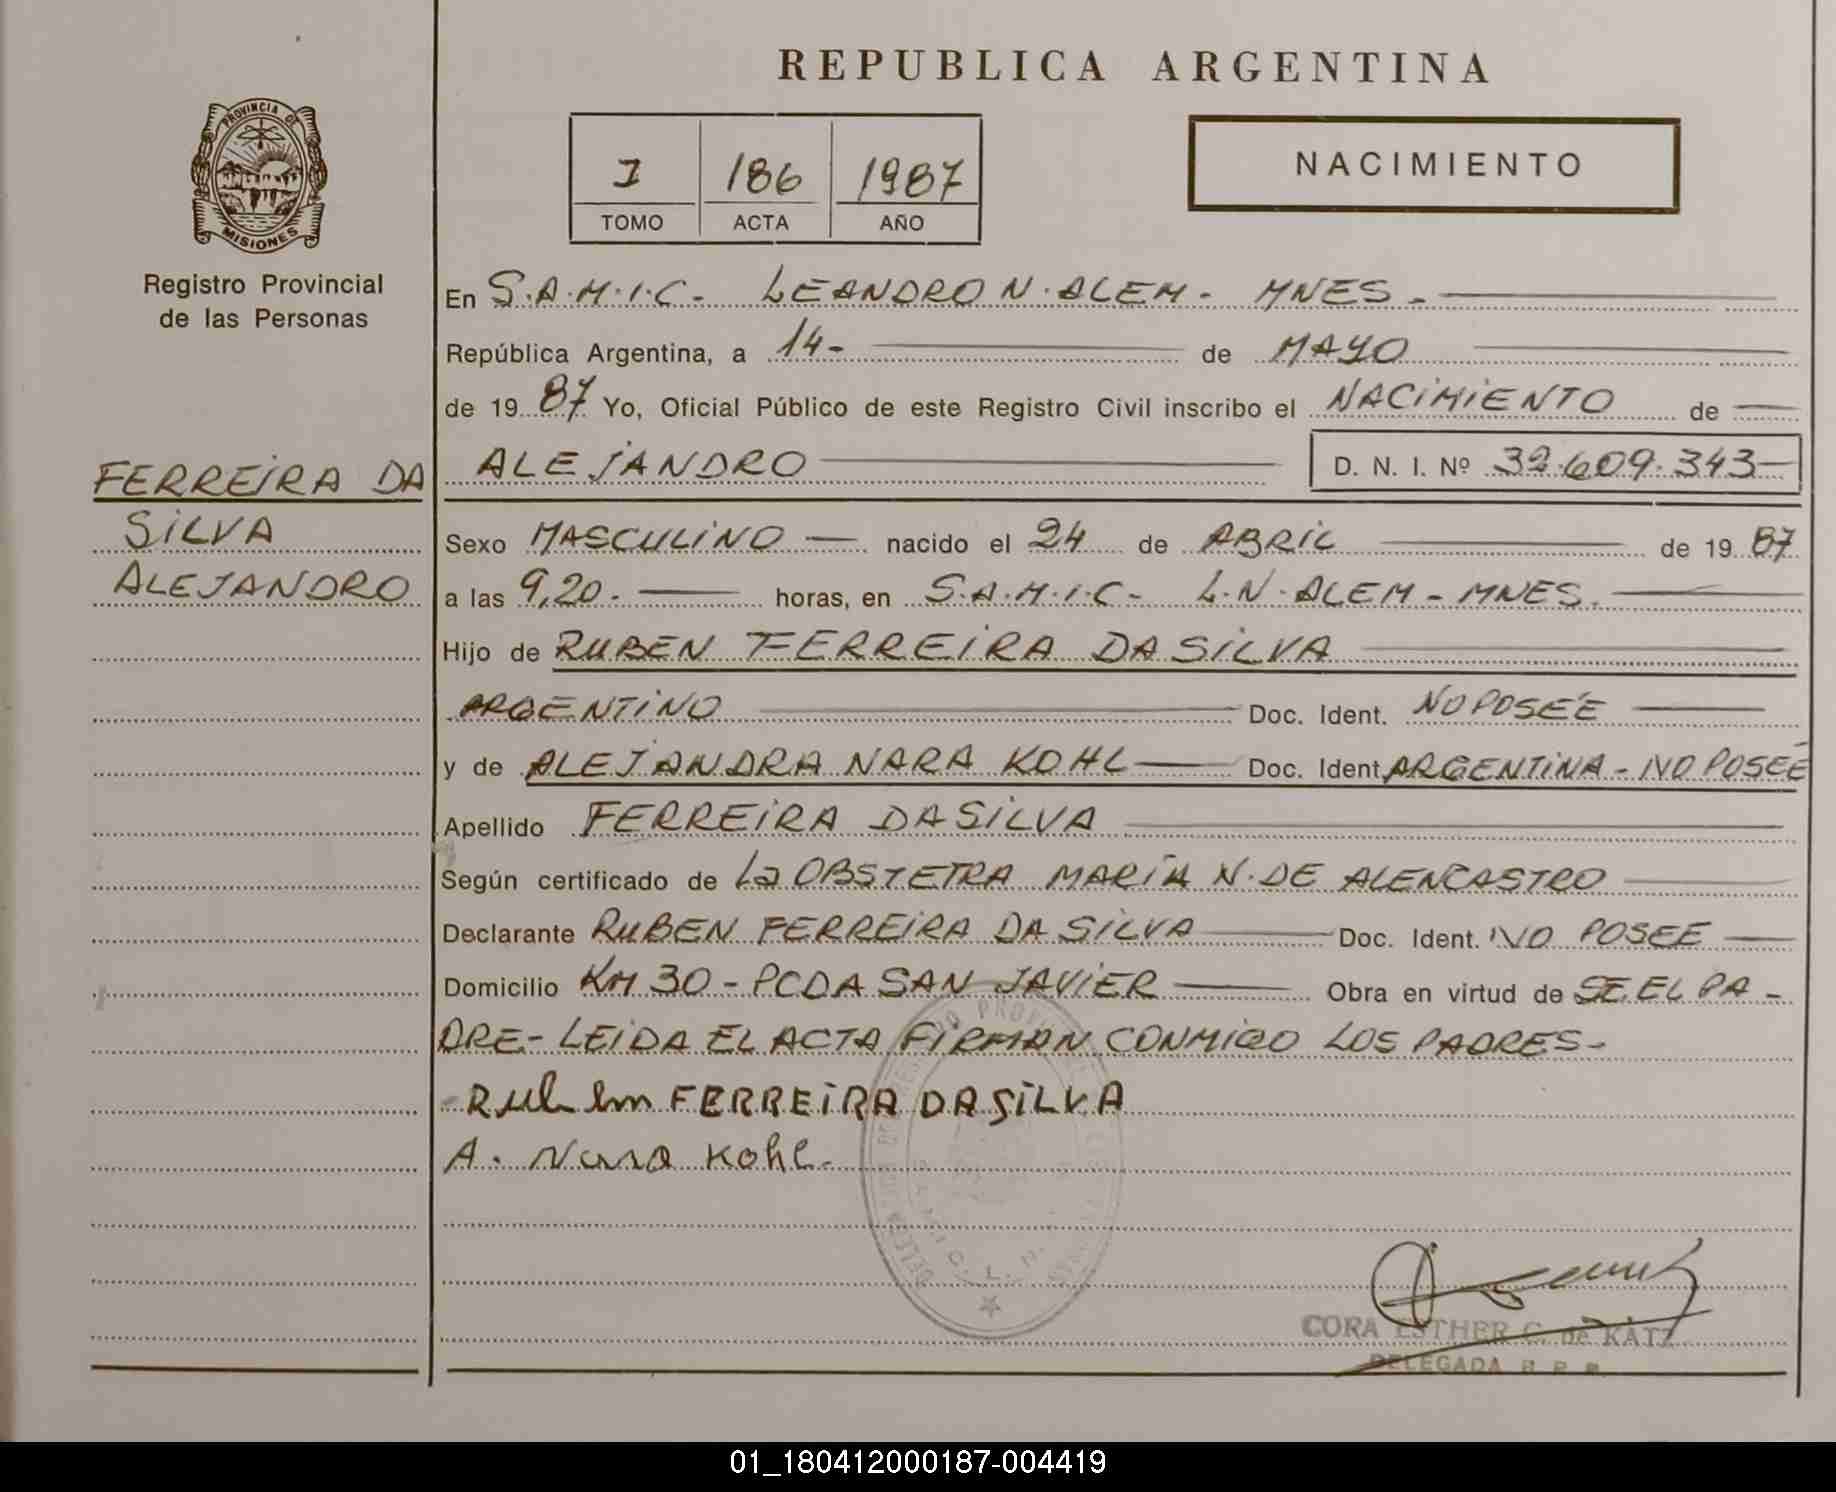 REPUBLICA ARGENTINA
PROVINCIA DE
MISIONES
Registro Provincial
de las Personas
I 186 1987
TOMO ACTA AÑO
NACIMIENTO
FERREIRA DA
SILVA
ALEJANDRO
En S.A.M.I.C. LEANDRO N. ALEM - MNES -
República Argentina, a 14- de MAYO
de 19 87 Yo, Oficial Público de este Registro Civil inscribo el NACIMIENTO de
ALEJANDRO D. N. I. Nº 32.609.343
Sexo MASCULINO nacido el 24 de ABRIL de 19 87
a las 9,20. horas, en S.A.M.I.C- L.N. ALEM - MNES.
Hijo de RUBEN FERREIRA DA SILVA
ARGENTINO Doc. Ident. NO POSÉE
y de ALEJANDRA NARA KOHL Doc. Ident. ARGENTINA - NO POSÉE
Apellido FERREIRA DA SILVA
Según certificado de La OBSTETRA MARÍA N. DE ALENCASTRO
Declarante RUBEN FERREIRA DA SILVA Doc. Ident. NO POSEE
Domicilio KM 30 - PCDA SAN JAVIER Obra en virtud de SE.EL PA-
DRE- LEIDA EL ACTA FIRMAN CONMIGO LOS PADRES-
FERREIRA DA SILVA
A. Nara Kohl.
CORA ESTHER C. de KATZ
DELEGADA
01_180412000187-004419